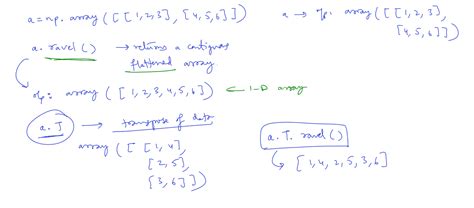 a = np. array ([[1,2,3], [4,5,6]])
a → o/p: array ([[1,2,3],
[4,5,6]])
a. ravel () → returns a contiguous
flattened array
o/p: array ([1,2,3,4,5,6]) ← 1-D array
a.T → transpose of data
array ([[1,4],
[2,5],
[3,6]])
a.T. ravel ()
[1,4,2,5,3,6]